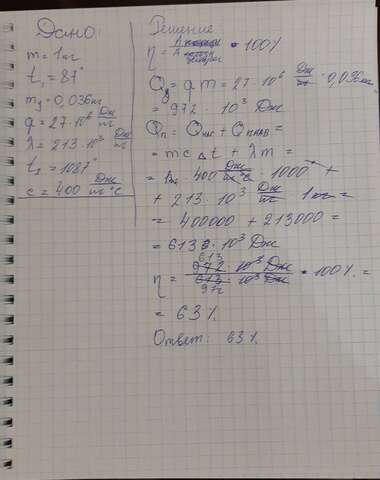 Дано:
m = 1 кг
t₁ = 87°
m₂ = 0,036 кг
q = 27·10⁶ Дж/кг
λ = 213·10³ Дж/кг
t₂ = 1087°
c = 400 Дж/кг°C
Решение
η = · 100%
Q = qm = 27·10⁶ Дж/кг · 0,036 кг
= 972·10³ Дж
Qп = Qнаг + Qплав =
= mcΔt + λm =
= 400 Дж/кг°C · 1000 +
+ 213·10³ Дж/кг · 1кг =
= 400000 + 213000 =
= 613·10³ Дж
η = 613·10³ Дж / 972·10³ Дж · 100% =
= 63%
Ответ: 63%